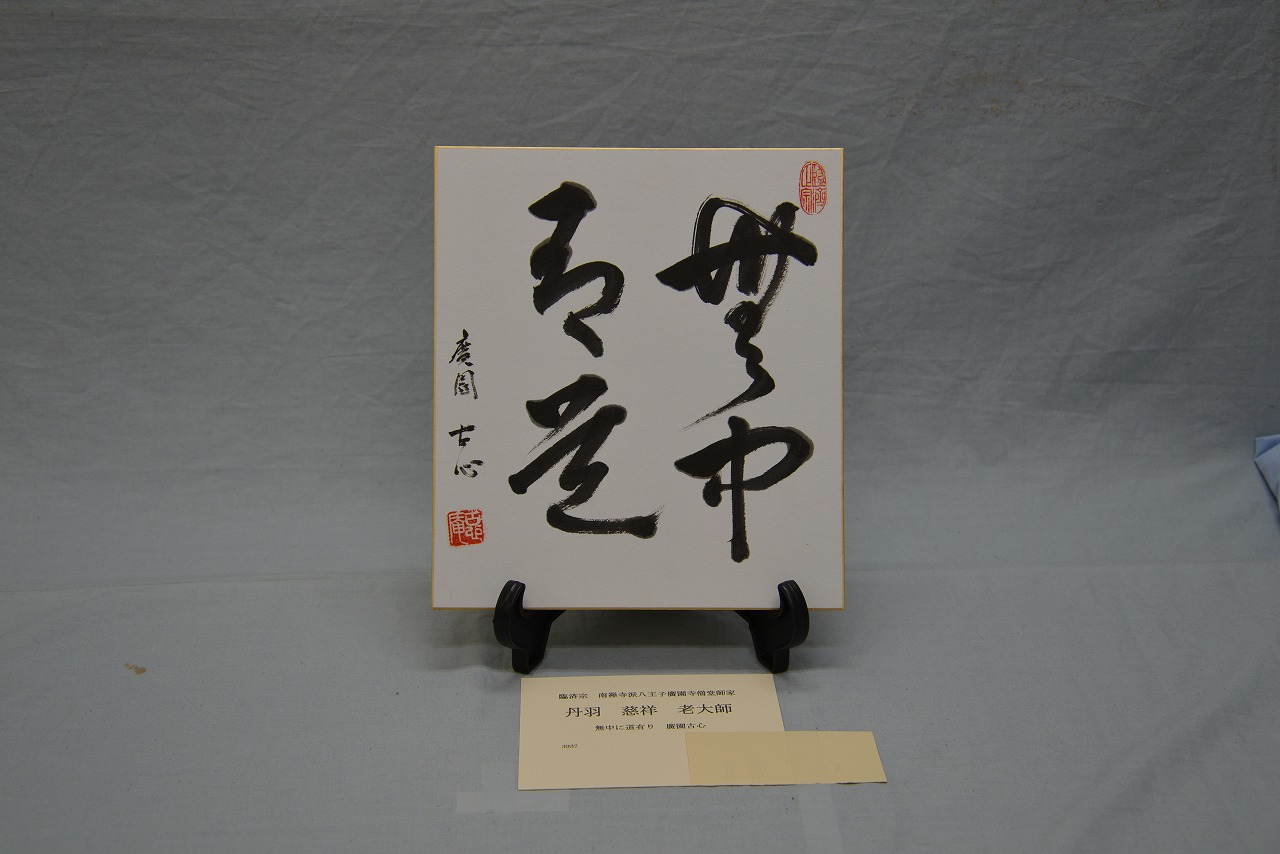 無中
有道
廣園 古心
臨済宗 南禅寺派八王子廣園寺僧堂師家
丹羽 慈祥 老大師
無中に道有り 廣園古心
3937